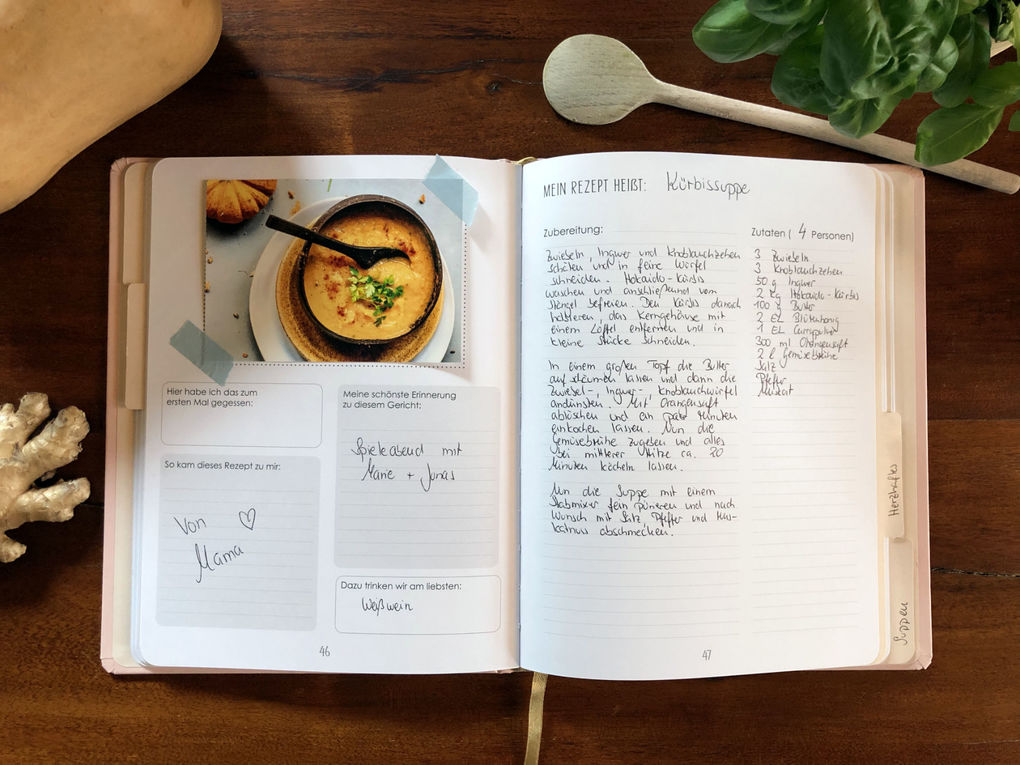 Hier habe ich das zum
ersten Mal gegessen:
So kam dieses Rezept zu mir:
Von ♡
Mama
Meine schönste Erinnerung
zu diesem Gericht:
Spieleabend mit
Marie + Jonas
Dazu trinken wir am liebsten:
Weißwein
46
MEIN REZEPT HEIẞT: Kürbissuppe
Zubereitung:
Zwiebeln, Ingwer und Knoblauchzehen
schälen und in feine Würfel
schneiden. Hokaido-Kürbis
waschen und anschließend vom
Stengel befreien. Den Kürbis danach
halbieren, das Kerngehäuse mit
einem Löffel entfernen und in
kleine Stücke schneiden.
In einem großen Topf die Butter
aufschäumen lassen und dann die
Zwiebel-, Ingwer- Knoblauchwürfel
andünsten. Mit Orangensaft
ablöschen und ein paar Minuten
einkochen lassen. Nun die
Gemüsebrühe zugeben und alles
bei mittlerer Hitze ca. 20
Minuten köcheln lassen.
Nun die Suppe mit einem
Stabmixer fein pürieren und nach
Wunsch mit Salz, Pfeffer und Mus-
katnuss abschmecken.
Zutaten ( 4 Personen)
3 Zwiebeln
3 Knoblauchzehen
50 g Ingwer
2 Kg Hokaido-Kürbis
100 g Butter
2 EL Blütenhonig
1 EL Currypulver
300 ml Orangensaft
2 l Gemüsebrühe
Salz
Pfeffer
Muskat
47
Herzhaftes
Suppen